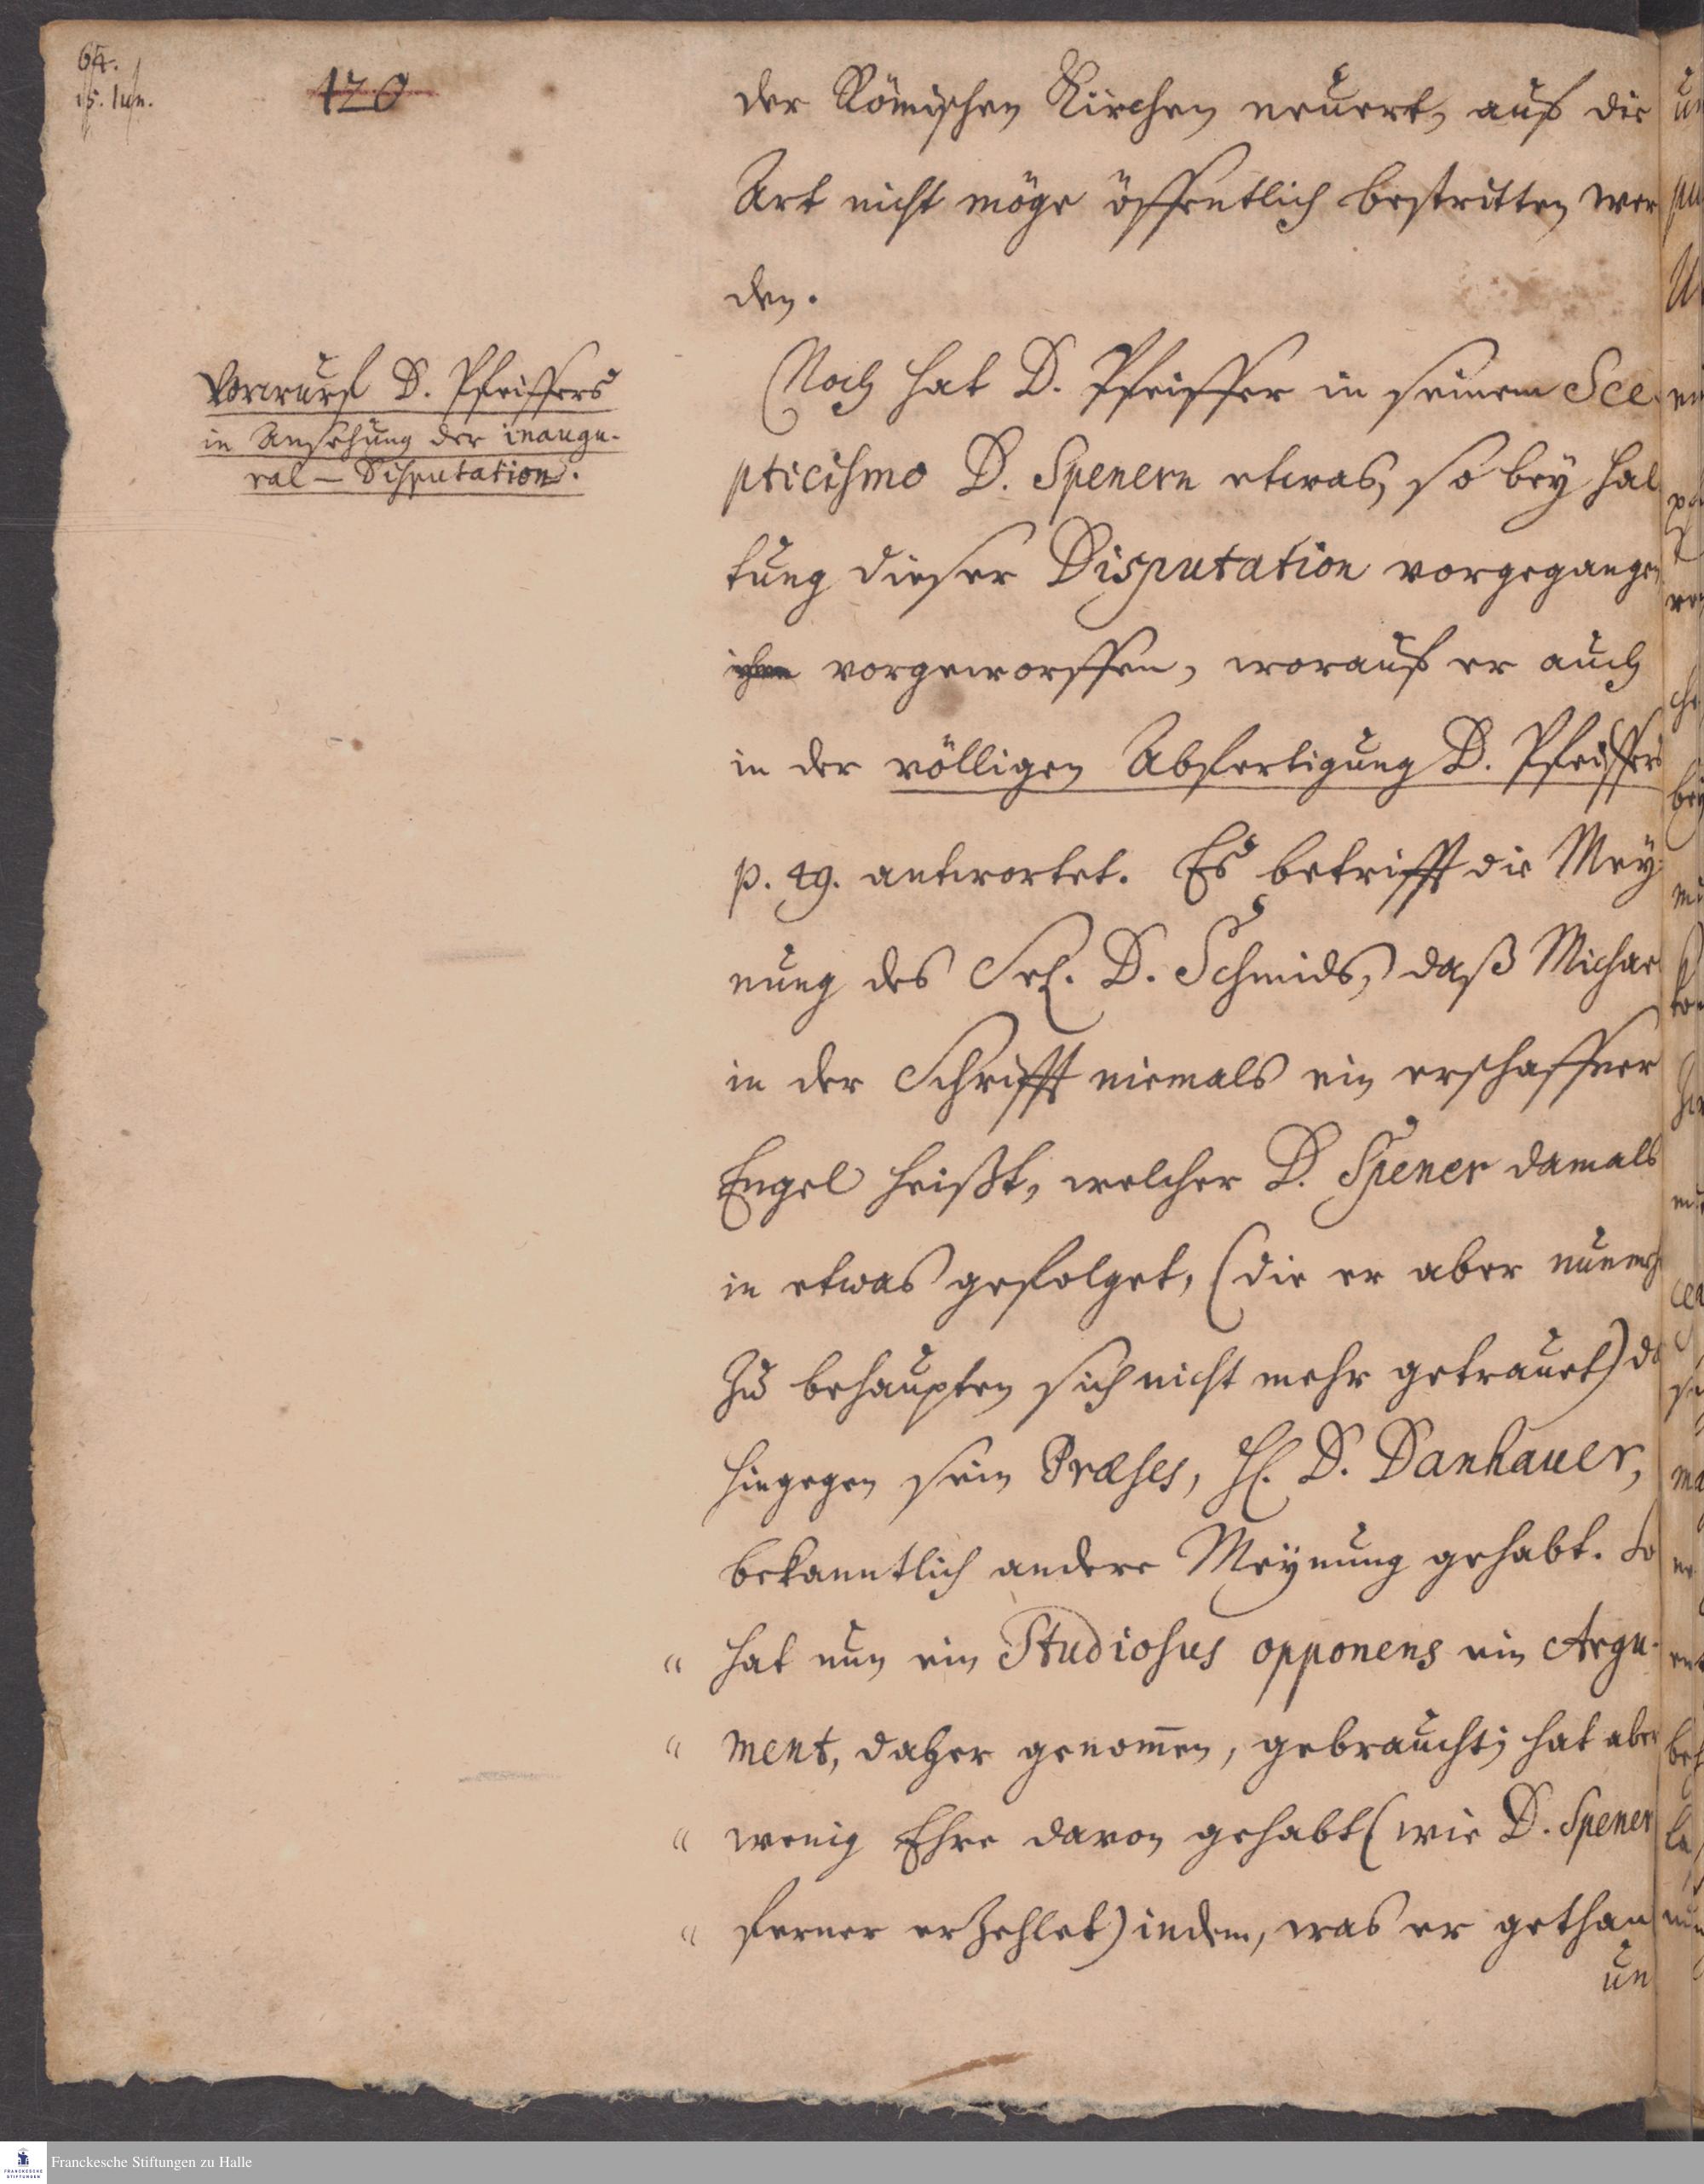 64.
15. Iun.
120
der Römischen Kirchen neuert, auf die
Art nicht möge öffentlich bestritten wer
den.
Vorwurf D. Pfeiffers
in Ansehung der inaugu-
ral-Disputation.
Noch hat D. Pfeiffer in seinem Sce-
pticismo D. Spenern etwas, so bey Hal
tung dieser Disputation vorgegangen
ihm vorgeworffen, worauf er auch
in der völligen Abfertigung D. Pfeiffers
p. 49. antwortet. Es betrifft die Mey-
nung des Sel. D. Schmids, daß Michae
in der Schrifft niemals ein erschaffner
Engel heißt, welcher D. Spener damals
in etwas gefolget, (die er aber nunmeh
zu behaupten sich nicht mehr getrauet) da
hingegen sein Præses, H. D. Danhauer,
bekanntlich andere Meynung gehabt. So
„ hat nun ein Studiosus opponens ein Argu-
„ ment, daher genom̄en, gebraucht; hat aber
„ wenig Ehre davon gehabt (wie D. Spener
„ ferner erzehlet) indem, was er gethan
un
Franckesche Stiftungen zu Halle